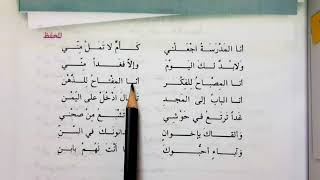 للحفظ
أنا المَدْرَسَةُ اجْعَلْني كَأُمٍّ لا تَمِلْ عِنّي
ولابُدَّ لَكَ اليَوْمَ وإلاّ فَغَداً مِنّي
أنا المِصْباحُ لِلْفِكْرِ أنا المِفْتاحُ لِلذِّهْنِ
أنا البابُ إلى المَجْدِ ادْخُلْ عَلى اليُمْنِ
غَداً تَرْتَعُ في حَوْشي تَشْبَعُ مِنْ صَحْني
وألْقاكَ بِإخْوانٍ في السِّنِّ
وآباءٍ أحَبُّوكَ أنْتَ لَهُمْ بِابْنِ